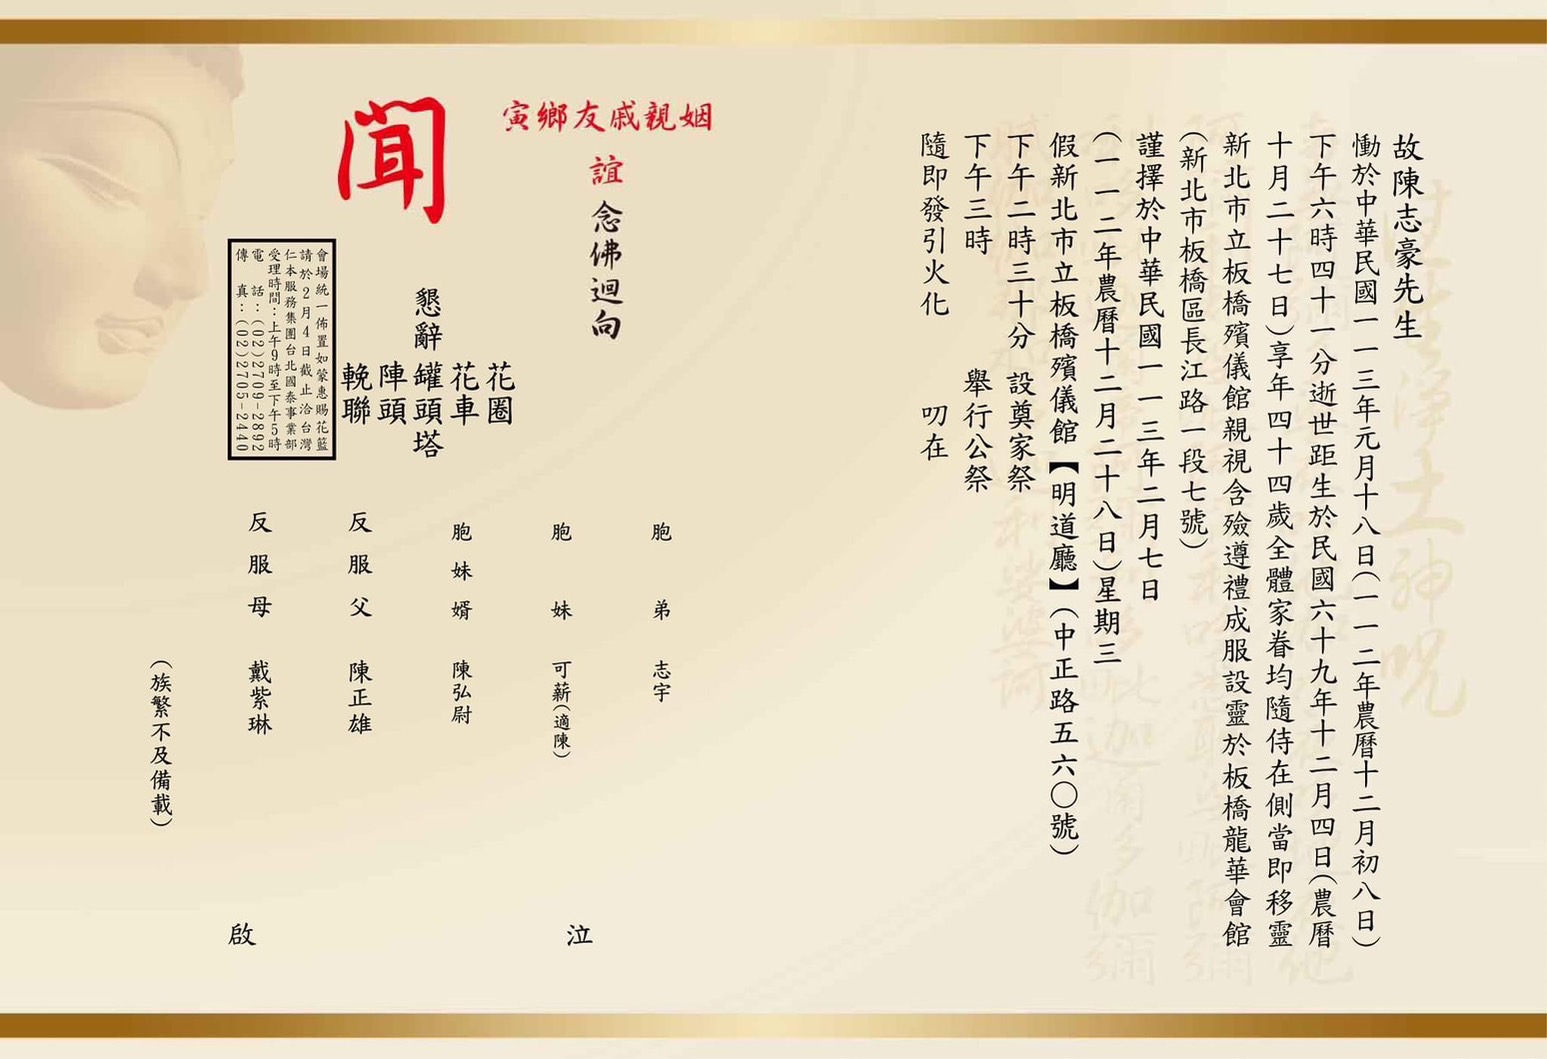 故陳志豪先生
慟於中華民國一一三年元月十八日(一一二年農曆十二月初八日)
下午六時四十一分逝世距生於民國六十九年十二月四日(農曆
十月二十七日)享年四十四歲全體家眷均隨侍在側當即移靈
新北市立板橋殯儀館親視含殮遵禮成服設靈於板橋龍華會館
(新北市板橋區長江路一段七號)
謹擇於中華民國一一三年二月七日
(一一二年農曆十二月二十八日)星期三
假新北市立板橋殯儀館【明道廳】(中正路五六〇號)
下午二時三十分 設奠家祭
下午三時 舉行公祭
隨即發引火化 叨在
姻親戚友鄉寅
誼念佛迴向
聞
懇辭
花圈
花車
罐頭塔
陣頭
輓聯
會場統一佈置如蒙惠賜花籃
請於2月4日截止洽台灣
仁本服務集團台北國泰事業部
受理時間:上午9時至下午5時
電 話:(02)2709-2892
傳 真:(02)2705-2440
胞弟 志宇
胞妹 可薪(適陳)
胞妹婿 陳弘尉
反服父 陳正雄
反服母 戴紫琳
(族繁不及備載)
泣 啟